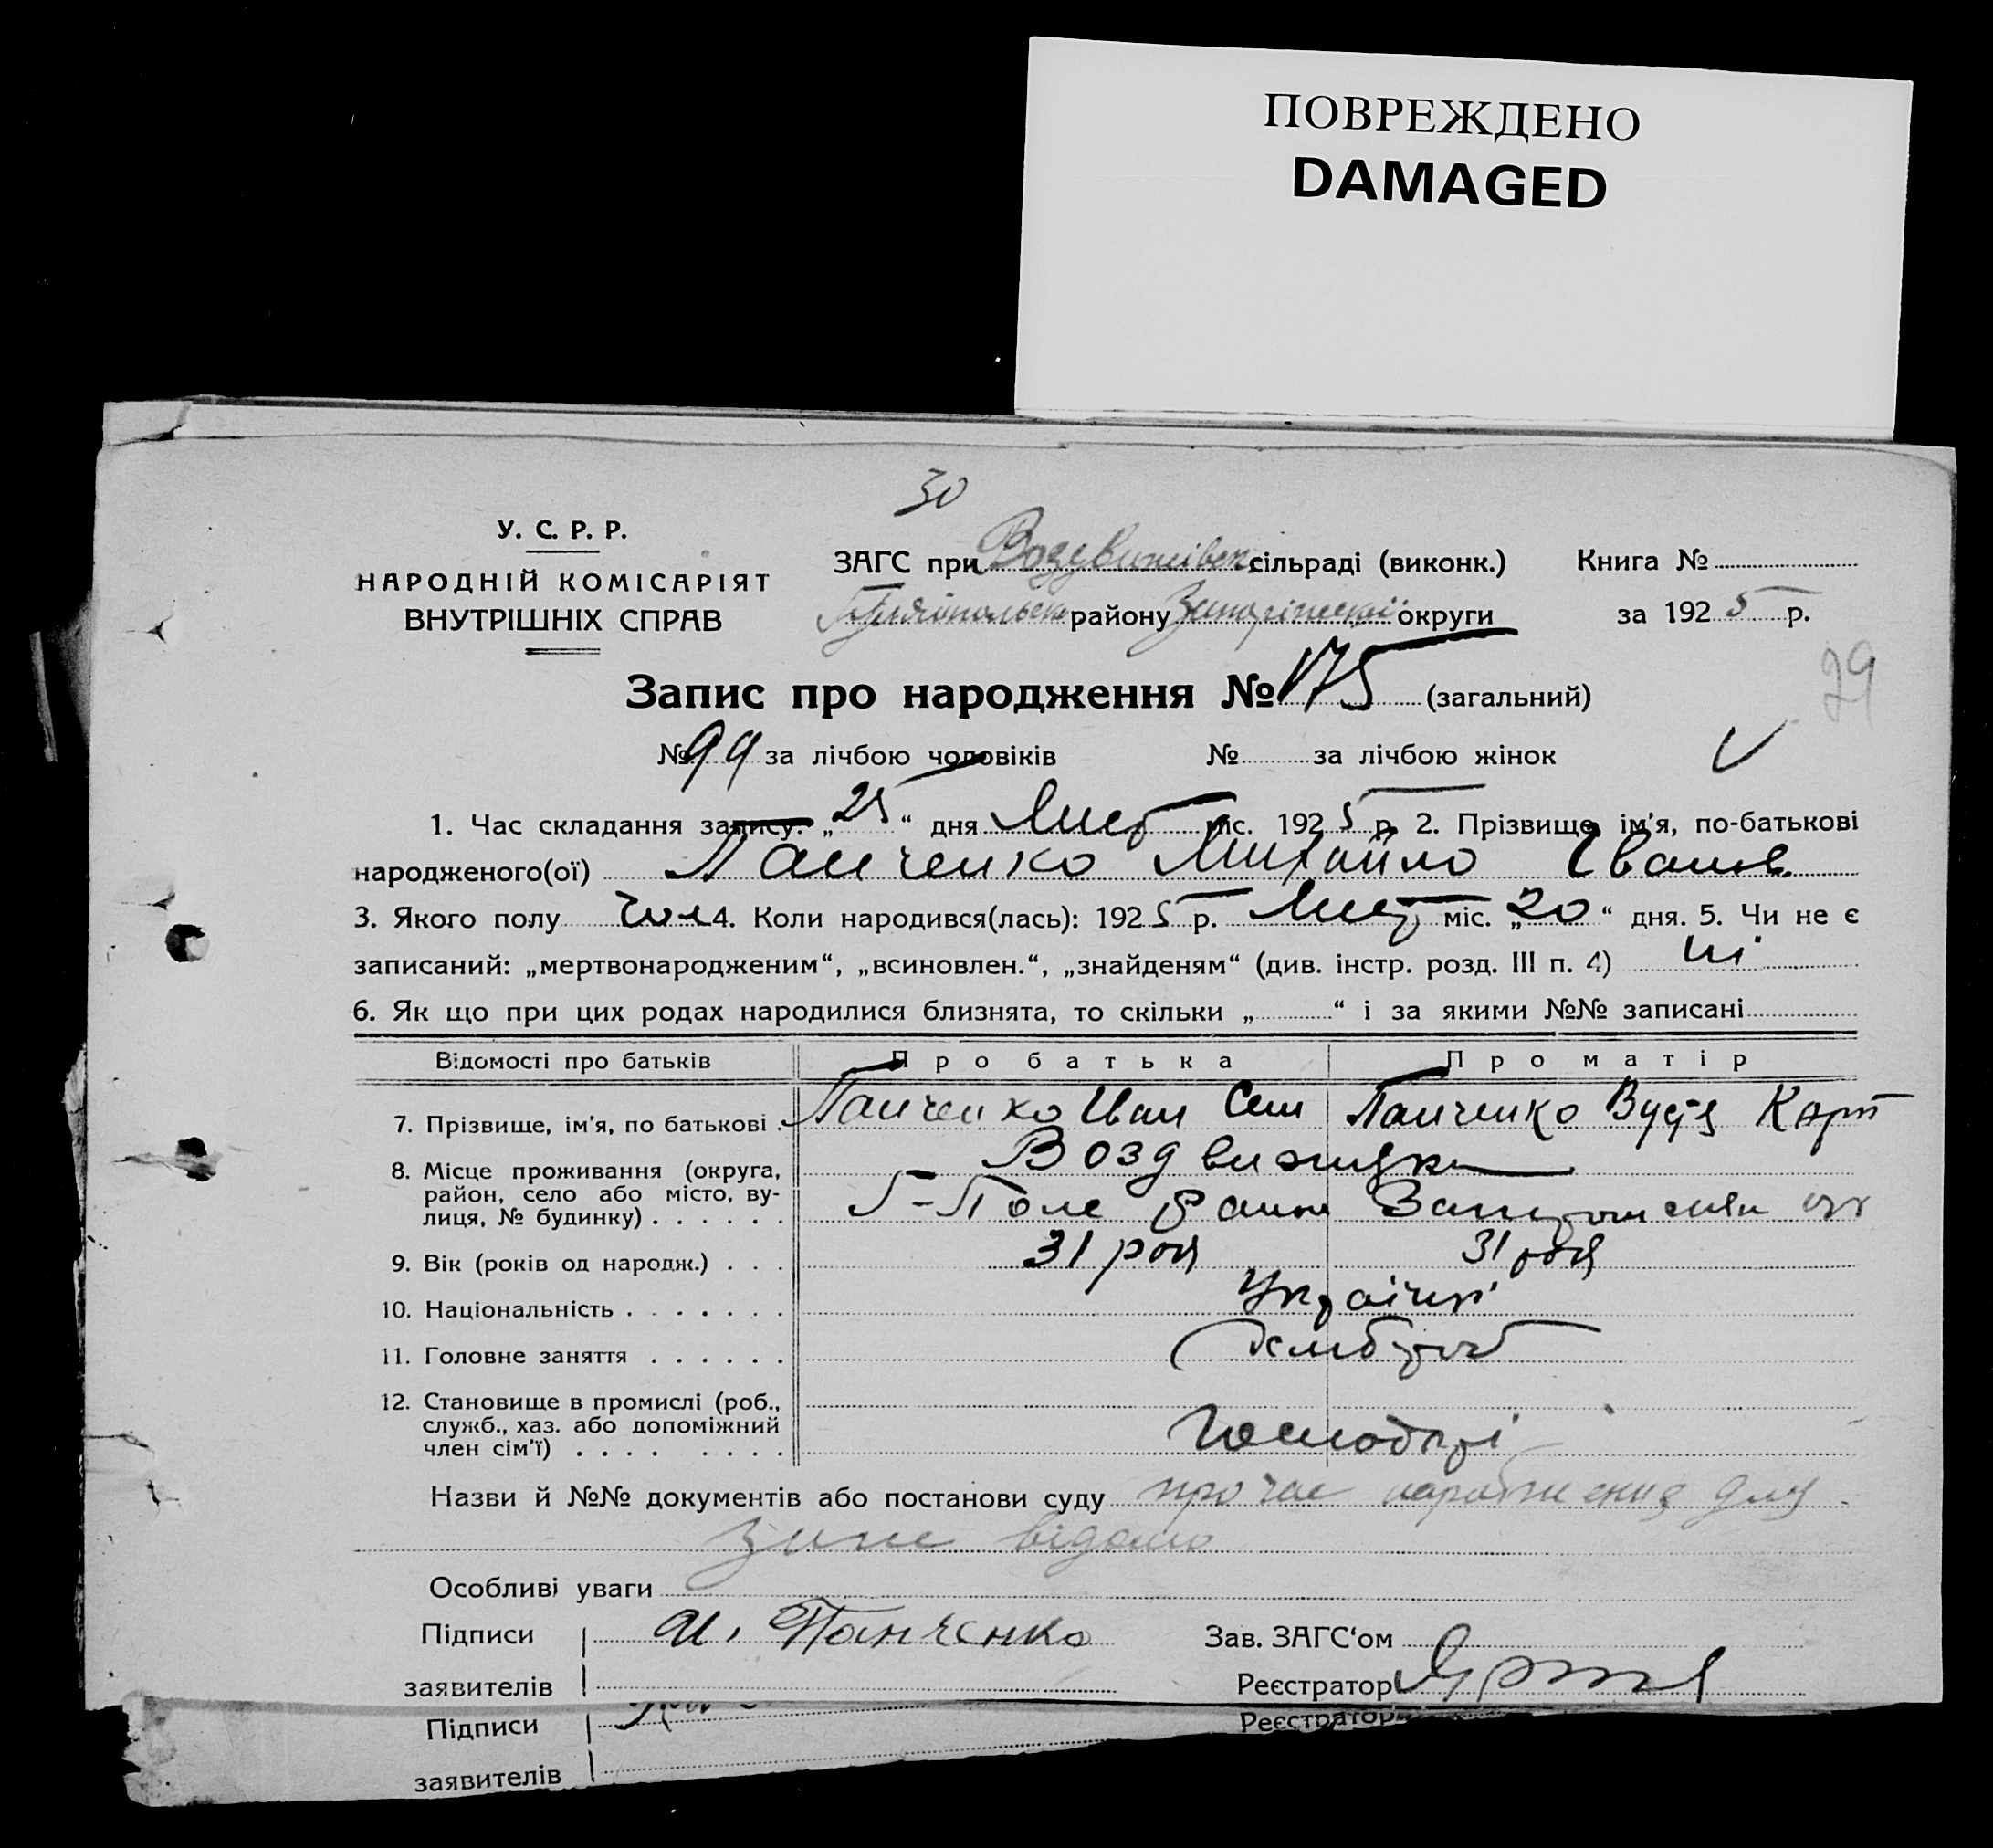 ПОВРЕЖДЕНО
DAMAGED
30
У. С. Р. Р.
НАРОДНІЙ КОМІСАРІЯТ
ВНУТРІШНІХ СПРАВ
ЗАГС при Воздвижівск сільраді (виконк.)
району округи
Книга №
за 1925 р.
29
Запис про народження № 175 (загальний)
№ 99 за лічбою чоловіків № за лічбою жінок
1. Час складання запису: „25“ дня Лист міс. 1925 р. 2. Прізвище, ім'я, по-батькові
народженого(ої) Панченко Михайло Іванов
3. Якого полу Чол 4. Коли народився(лась): 1925 р. Лист міс. „20“ дня. 5. Чи не є
записаний: „мертвонародженим“, „всиновлен.“, „знайденям“ (див. інстр. розд. III п. 4) ні
6. Як що при цих родах народилися близнята, то скільки „ “ і за якими №№ записані
Відомості про батьків Про батька Про матір
7. Прізвище, ім'я, по батькові . Панченко Иван Сем Панченко Карп
8. Місце проживання (округа,
район, село або місто, ву-
лиця, № будинку) . . . . . .
Г-Поле
9. Вік (років од народж.) . . . 31 рок 31 рок
10. Національність . . . . . . . Українці
11. Головне заняття . . . . . . Хлібороб
12. Становище в промислі (роб.,
служб., хаз. або допоміжний
член сім'ї) . . . . . . . . Господарі
Назви й №№ документів або постанови суду про час
відомо
Особливі уваги
Підписи
заявителів
И. Панченко
Зав. ЗАГС‘ом
Реєстратор
Підписи
заявителів
Реєстратор